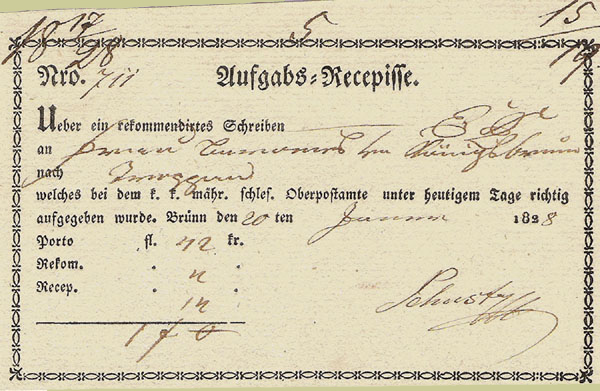 18 17/28 5 15/19
Nro. 711 Aufgabs=Recepisse.
Ueber ein rekommendirtes Schreiben
an Königsbrunn
nach Troppau
welches bei dem k. k. mähr. schles. Oberpostamte unter heutigem Tage richtig
aufgegeben wurde. Brünn den 20 ten Januar 1828
Porto fl. 42 kr.
Rekom. . 4 .
Recep. . .
14
Schusty